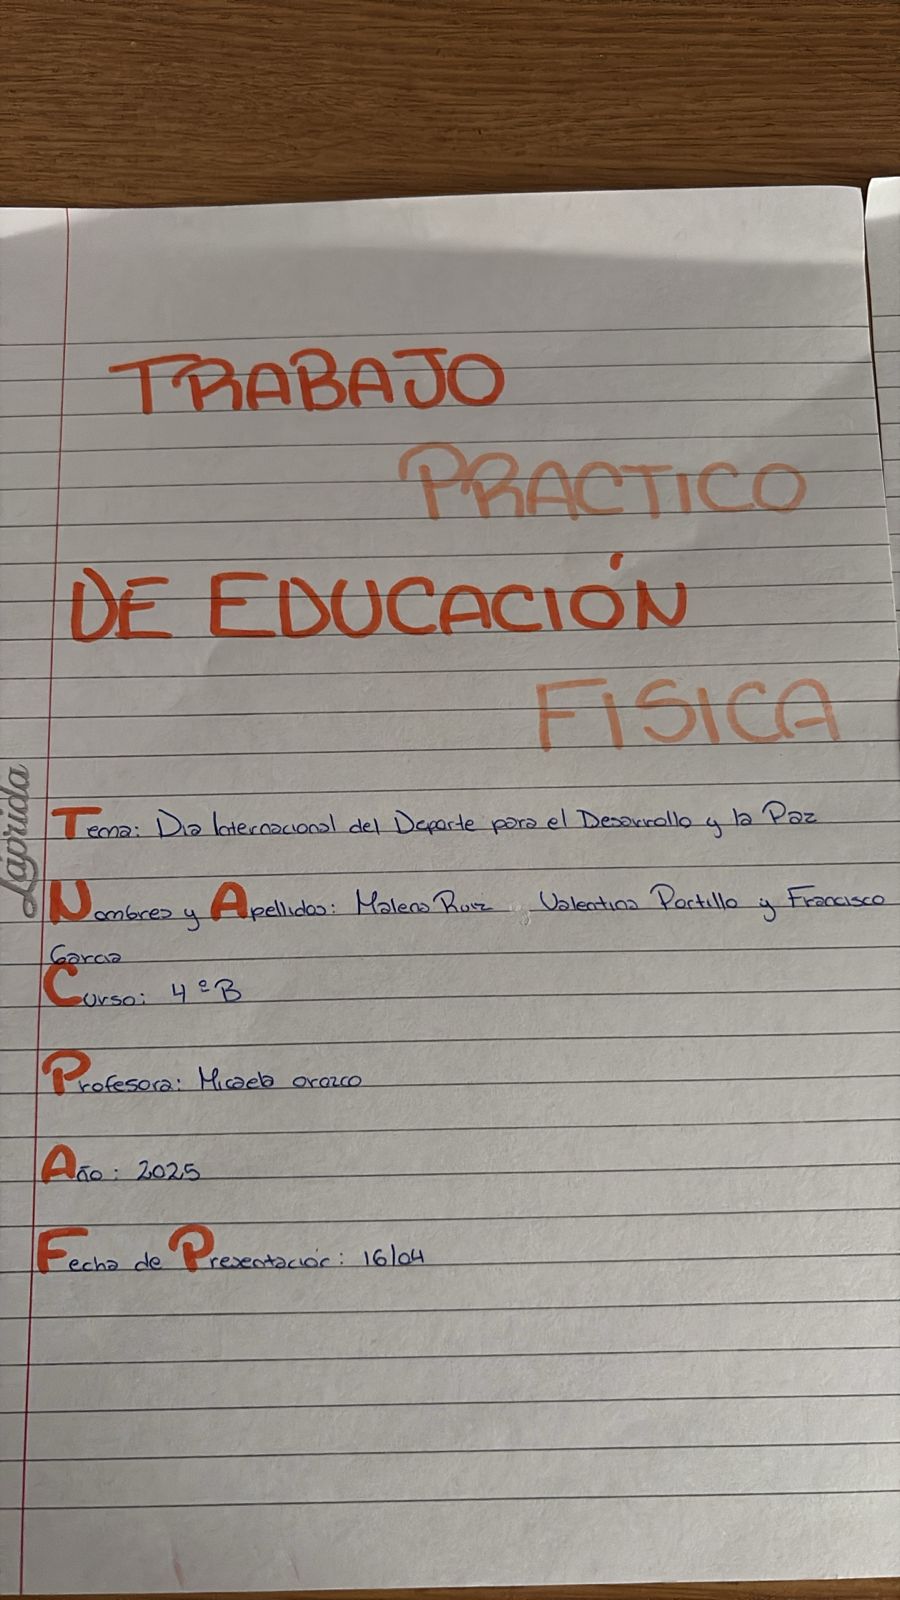 TRABAJO
PRACTICO
DE EDUCACIÓN
FISICA
Laprida
Tema: Dia Internacional del Deporte para el Desarrollo y la Paz
Nombres y Apellidos: Malena Ruiz, Valentina Portillo y Francisco
Garcia
Curso: 4ºB
Profesora: Micaela orozco
Año: 2025
Fecha de Presentación: 16/04